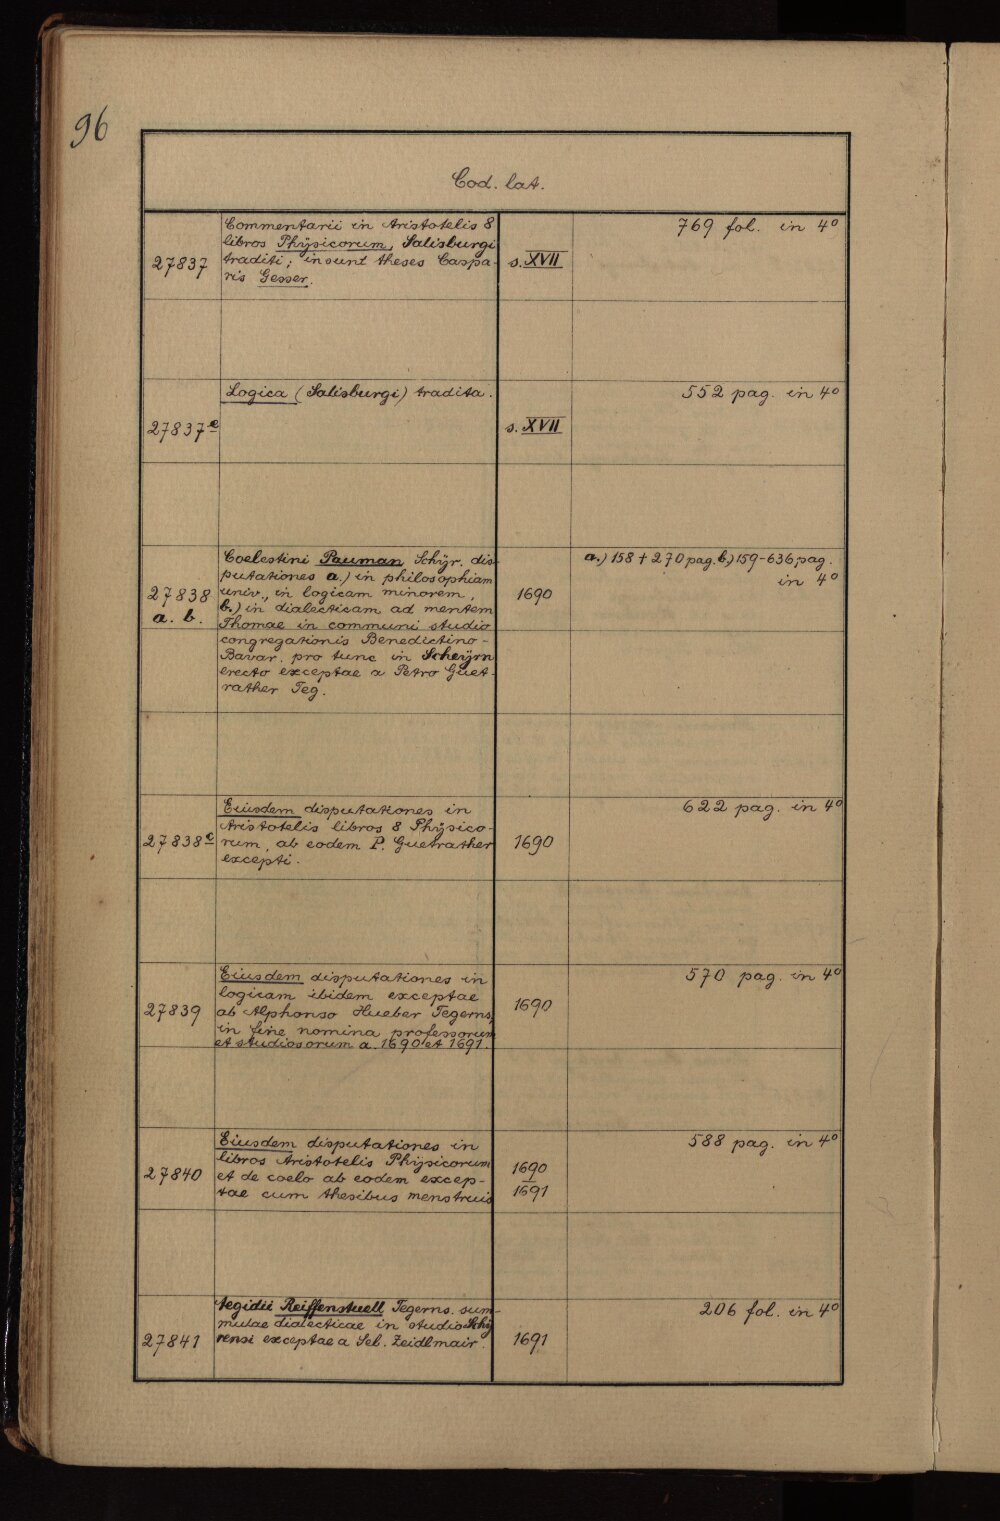 96
Cod. lat.
27837
Commentarii in Aristotelis 8
libros Phÿsicorum, Salisburgi
traditi; insunt theses Caspa-
ris Gesser.
s. XVII
769 fol. in 4º
27837ª
Logica (Salisburgi) tradita.
s. XVII
552 pag. in 4º
27838
a. b.
Coelestini Pauman Schÿr. dis
putationes a.) in philosophiam
univ., in logicam minorem,
b.) in dialecticam ad mentem
Thomae in communi studio
congregationis Benedictino-
Bavar. pro tunc in Scheÿrn
erecto exceptae a Petro Guet-
rather Teg.
1690
a.) 158 + 270 pag. b.) 159-636 pag.
in 4º
27838c
Eiusdem disputationes in
Aristotelis libros 8 Phÿsico-
rum, ab eodem P. Guetrather
excepti.
1690
622 pag. in 4º
27839
Eiusdem disputationes in
logicam ibidem exceptae
ab Alphonso Hueber Tegerns.
in fine nomina professorum
et studiosorum a. 1690 et 1691.
1690
570 pag. in 4º
27840
Eiusdem disputationes in
libros Aristotelis Phÿsicorum
et de coelo ab eodem excep-
tae cum thesibus menstruis
1690
1691
588 pag. in 4º
27841
Aegidii Reiffenstuell Tegerns. sum-
mulae dialecticae in studio Schÿ
rensi exceptae a Seb. Zeidlmair.
1691
206 fol. in 4º